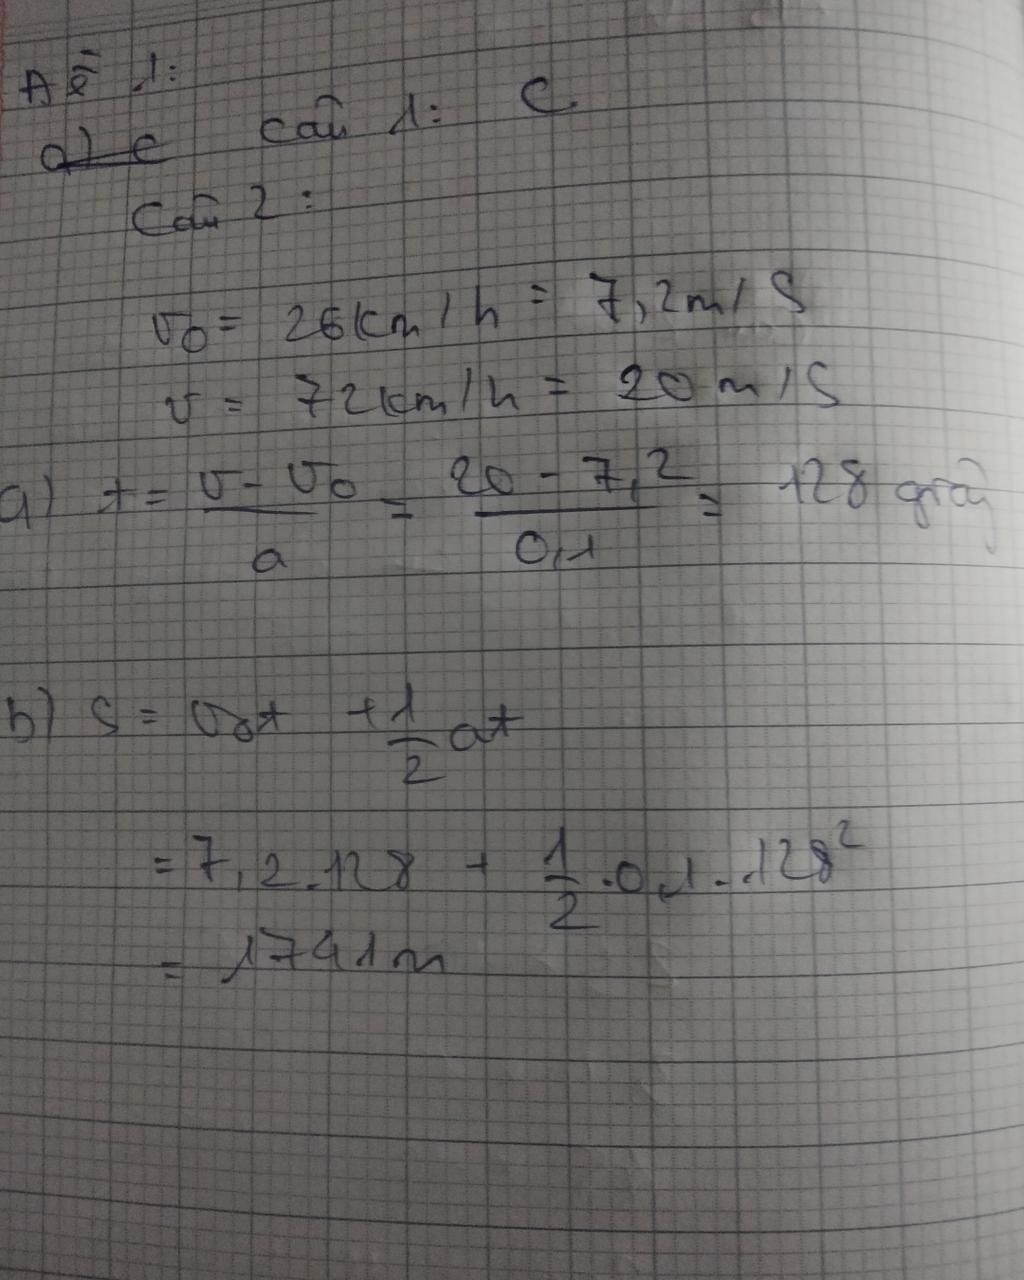 Đề 1:
a) c Câu 1: C
Câu 2:
v₀ = 26km/h = 7,2m/s
v = 72km/h = 20m/s
a) t = (v - v₀)/a = (20 - 7,2)/0,1 = 128 giây
b) s = v₀t + 1/2 at
= 7,2.128 + 1/2 .0,1..128²
= 1741m